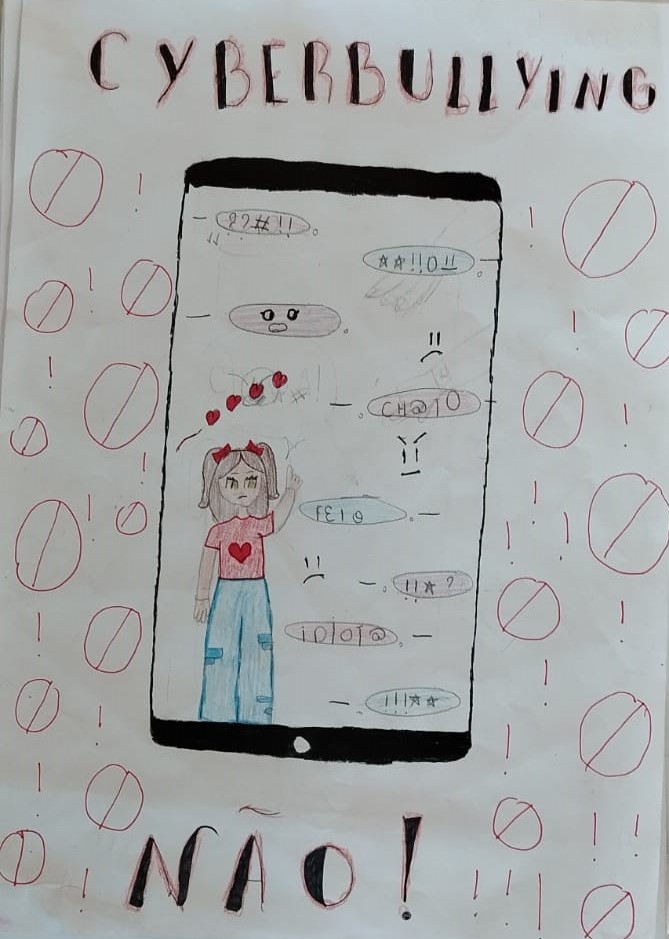 CYBERBULLYING
??#!!
☆☆!!O!!
CH@TO
FEIO
!!☆?
IDIOT@
!!!☆☆
NÃO!